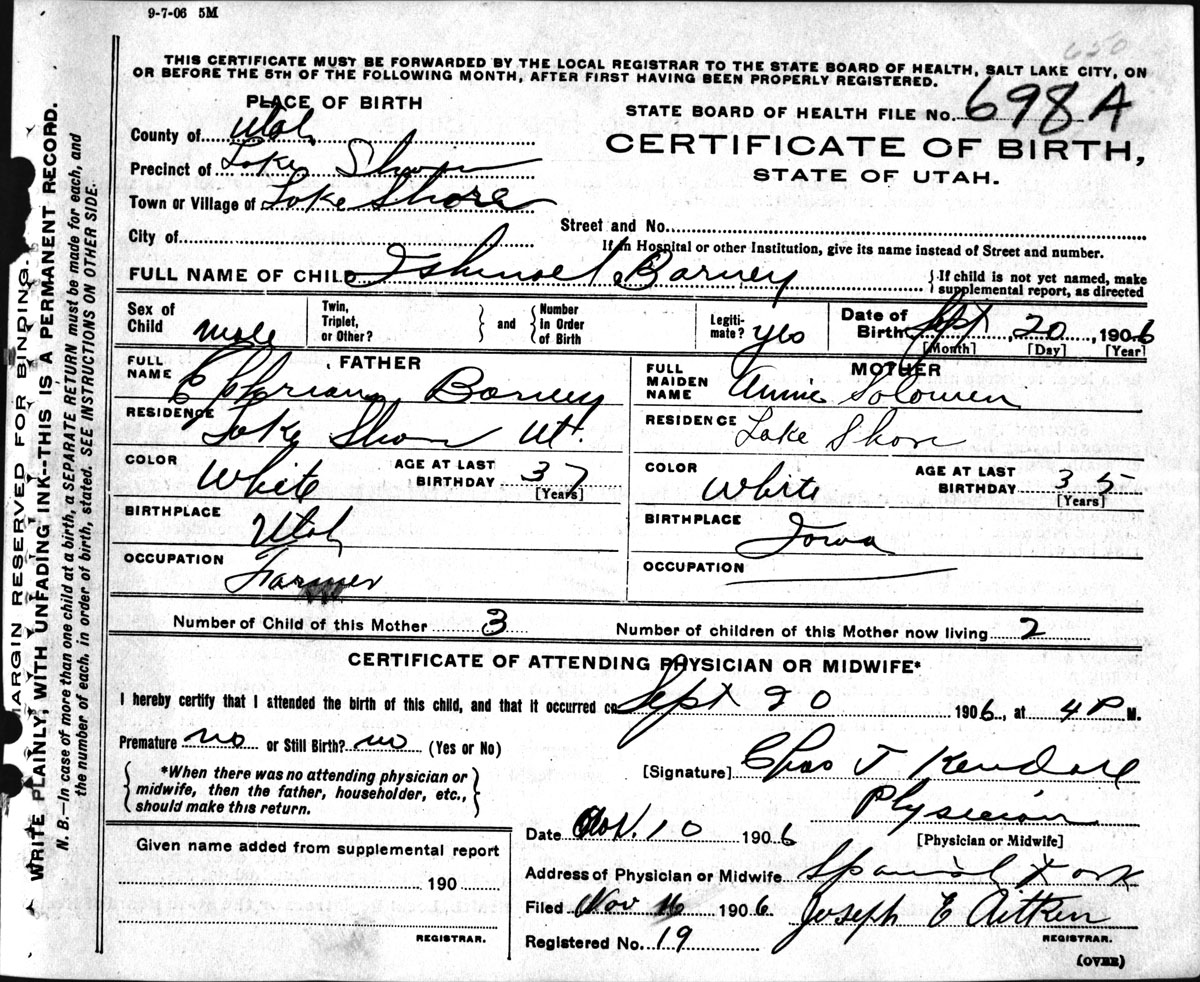 9-7-06 5M
650
THIS CERTIFICATE MUST BE FORWARDED BY THE LOCAL REGISTRAR TO THE STATE BOARD OF HEALTH, SALT LAKE CITY, ON
OR BEFORE THE 5TH OF THE FOLLOWING MONTH, AFTER FIRST HAVING BEEN PROPERLY REGISTERED.
MARGIN RESERVED FOR BINDING.
WRITE PLAINLY, WITH UNFADING INK--THIS IS A PERMANENT RECORD.
N. B.—In case of more than one child at a birth, a SEPARATE RETURN must be made for each, and
the number of each, in order of birth, stated. SEE INSTRUCTIONS ON OTHER SIDE.
PLACE OF BIRTH
County of Utah
Precinct of Lake Shore
Town or Village of Lake Shore
City of
STATE BOARD OF HEALTH FILE No. 698 A
CERTIFICATE OF BIRTH,
STATE OF UTAH.
Street and No.
If in Hospital or other Institution, give its name instead of Street and number.
FULL NAME OF CHILD Barney
If child is not yet named, make
supplemental report, as directed
Sex of Child male
Twin, Triplet, or Other?
and
Number in Order of Birth
Legiti-mate? yes
Date of Birth Sept, 20, 1906
[Month] [Day] [Year]
FATHER
FULL NAME Barney
RESIDENCE Lake Shore Ut.
COLOR White
AGE AT LAST BIRTHDAY 37
[Years]
BIRTHPLACE Utah
OCCUPATION Farmer
MOTHER
FULL MAIDEN NAME Annie Solomen
RESIDENCE Lake Shore
COLOR White
AGE AT LAST BIRTHDAY 35
[Years]
BIRTHPLACE Iowa
OCCUPATION
Number of Child of this Mother 3
Number of children of this Mother now living 2
CERTIFICATE OF ATTENDING PHYSICIAN OR MIDWIFE*
I hereby certify that I attended the birth of this child, and that it occurred on Sept 20 1906, at 4 P M.
Premature no or Still Birth? no (Yes or No)
*When there was no attending physician or
midwife, then the father, householder, etc.,
should make this return.
[Signature] Chas J Kendall
Physician
[Physician or Midwife]
Date Nov. 10 1906
Address of Physician or Midwife Spanish Fork
Filed Nov 16 1906 Joseph E Aitken
REGISTRAR.
Registered No. 19
(OVER)
Given name added from supplemental report
190
REGISTRAR.